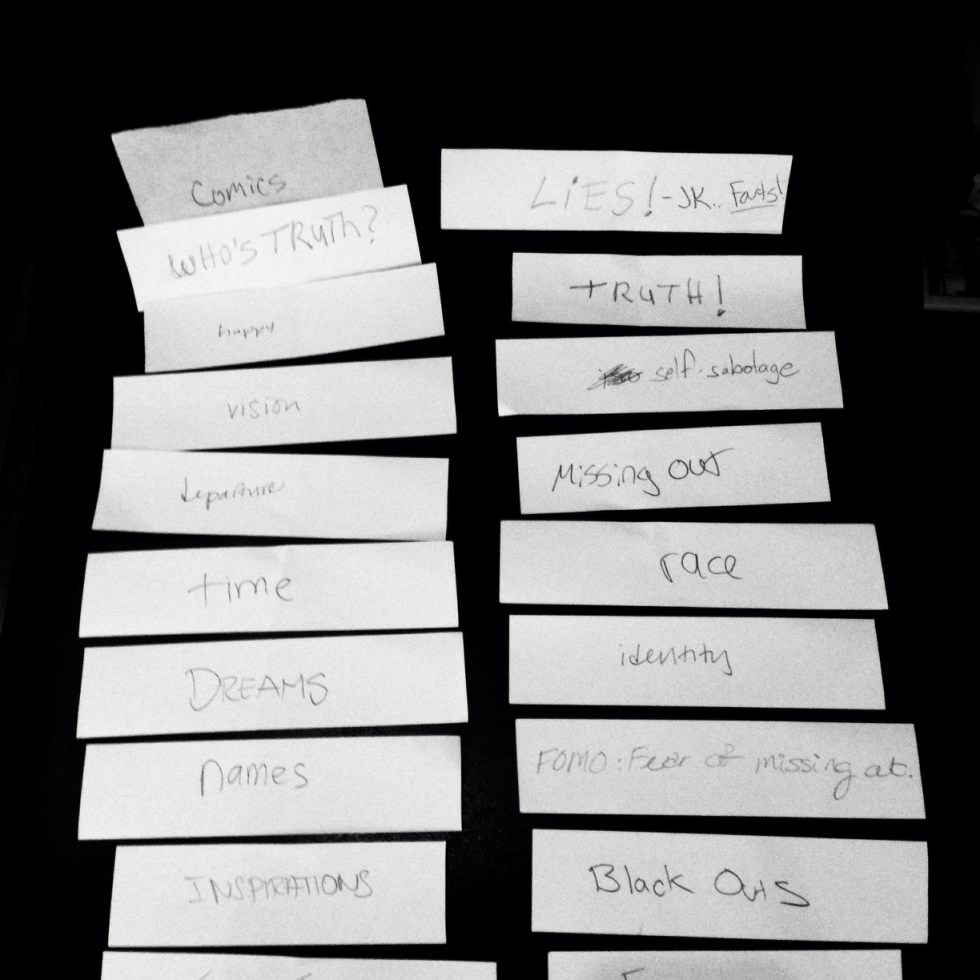 Comics
WHO'S TRUTH?
happy
vision
departure
time
DREAMS
names
INSPIRATIONS
LIES! - JK.. Facts!
TRUTH!
self-sabotage
Missing out
race
identity
FOMO: Fear of missing out.
Black Outs